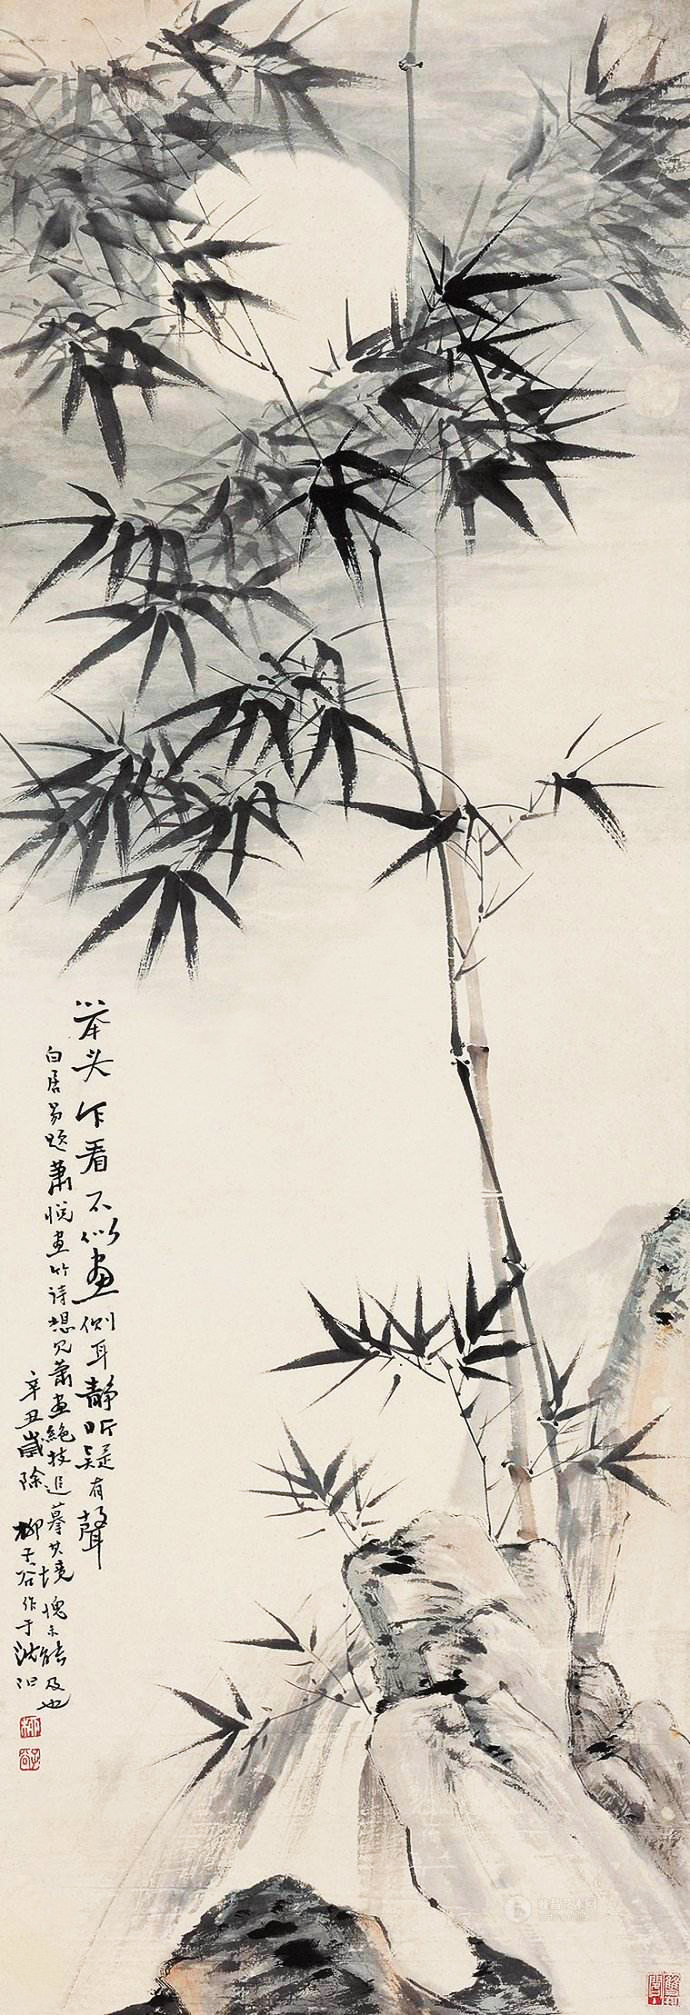 举头乍看不似画侧耳静听疑有聲
白居易题萧悦画竹诗想见萧画絶技追摹其境愧未能及也
辛丑歲除 柳子谷作于沈阳
柳
子谷